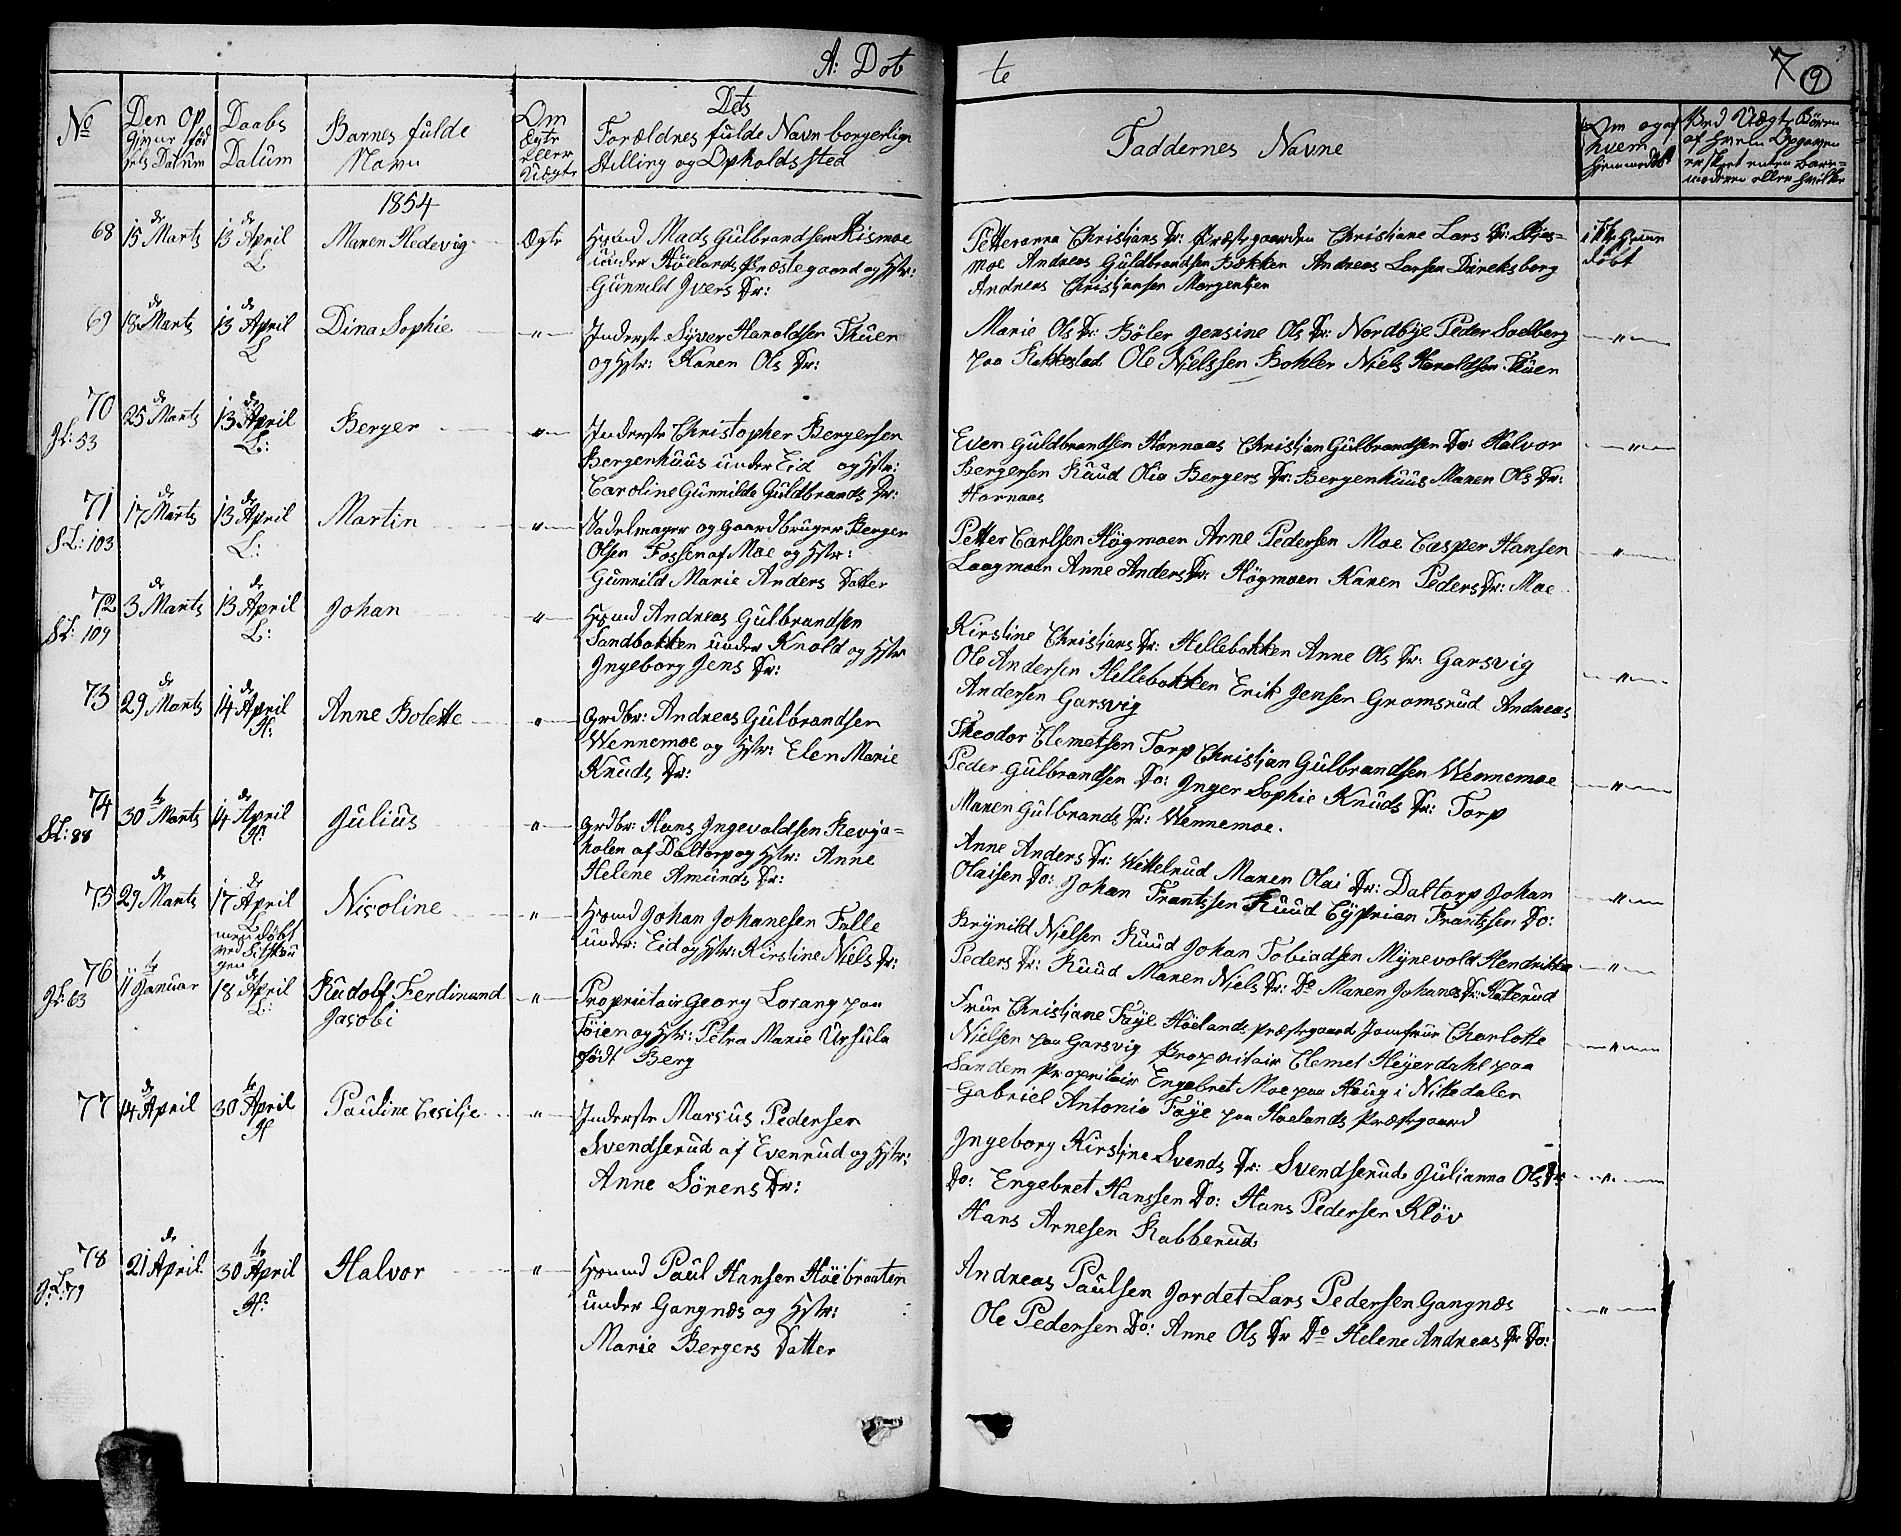 A: Døb
te
7 (9)
No
Den Op
givne Fød
sels Datum
Daabs
Datum
Barnes fulde
Navn
Om
Ægte
eller
Uægte
Dets
Forældres fulde Navn borgerlige
Stilling og Opholdssted
Faddernes Navne
Om og af
hvem
hjemmedøbt
Ved Uægte Børn
af hvem Opgaven
er skeet enten Barne=
moderen eller hvilke
1854
68 15 de Marts 13 de April L Maren Hedevig Ægte
Hsmd Mads Gulbrandsen Rismoe
under Høelands Præstegaard og Hstr:
Gunnild Ivers Dr:
Petteranna Christians Dr: Præstegaarden Christiane Lars Dr:
moe Andreas Guldbrandsen Bækken Andreas Larsen Dineksborg
Andreas Christiansen Morgentien
ikke hjemme
døbt
69 18 de Marts 13 de April L Dina Sophie "
Inderst Syver Haraldsen Thuen
og Hstr: Karen Ols Dr:
Marie Ols Dr: Bøler Jensine Ols Dr: Nordbye Peder Soelberg
paa Rakkestad Ole Nielssen Bohler Niels Haraldsen Thuen
"
70 25 de Marts 13 de April L: Berger "
JL: 53
Inderst Christopher Bergersen
Bergerhuus under Eid og Hstr:
Caroline Gunnilde Guldbrands Dr:
Even Guldbrandsen Hornaas Christian Gulbrandsen Do: Halvor
Bergersen Ruud Olia Bergers Dr: Bergerhuus Maren Ols Dr:
Hornaas
"
71 17 de Marts 13 de April L: Martin "
SL: 103
Sadelmager og Gaardbruger Berger
Olsen Fossen af Moe og Hstr:
Gunnild Marie Anders Datter
Petter Carlsen Høgmoen Arne Pedersen Moe Casper Hansen
Laagmoen Anne Anders Dr: Høgmoen Karen Peders Dr: Moe
"
72 3 de Marts 13 de April L: Johan "
SL: 109
Hsmd Andreas Gulbrandsen
Sandbakken under Knold og Hstr
Ingeborg Jens Dr:
Kirstine Christians Dr: Hellebakken Anne Ols Dr: Garsvig
Ole Andersen Hellebakken Erik Jensen Gromsrud Andreas
Andersen Garsvig
"
73 29 de Marts 14 de April H: Anne Bolette "
Grdbr: Andreas Gulbrandsen
Wennemoe og Hstr: Elen Marie
Knuds Dr:
Theodor Clemetsen Torp Christian Gulbrandsen Wennemoe
Peder Gulbrandsen Do: Inger Sophie Knuds Dr: Torp
Maren Gulbrands Dr: Wennemoe.
"
74 30 te Marts 14 de April H: Julius "
SL: 88
Grdbr: Hans Ingevaldsen Revja=
holen af Daltorp og Hstr: Anne
Helene Amunds Dr:
Anne Anders Dr: Wittelrud Maren Olai Dr: Daltorp Johan
Olaisen Do: Johan Frantssen Ruud Cyprian Frantssen Do:
"
75 29 de Marts 17 de April L Nicoline "
men døbt
ved
gen
Hsmd Johan Johanesen Falle
under: Eid og Hstr: Kirstine Niels Dr:
Brynild Nielsen Ruud Johan Tobiadsen Mynevold Hendrikke
Peders Dr: Ruud Maren Niels Dr: Do Maren Johans Dr: Katerud
"
76 11 te Januar 18 de April L: Rudolf Ferdinand
Jacobi "
JL: 63
Proprietair Georg Lorang paa
Töien og Hstr: Petra Marie Ursula
født Berg
Frue Christiane Faye Høelands Præstegaard Jomfrue Charlotte
Nielsen paa Garsvig Proprietair Clemet Heyerdahl paa
Sandem Proprietair Engebret Moe paa Haug i Nittedalen
Gabriel Antonio Faye paa Hoelands Præstegaard
"
77 14 de April 30 te April H Pauline Cecilie "
Inderst Marcus Pedersen
Svendserud af Evenrud og Hstr:
Anne Sörens Dr:
Ingeborg Kirstine Svends Dr: Svendserud Julianna Ols Dr:
Do: Engebret Hanssen Do: Hans Pedersen Kløv
Hans Arnesen Rabberud
"
78 21 de April 30 te April H: Halvor "
JL: 79
Hsmd Paul Hansen Høebraaten
under Gangnæs og Hstr:
Marie Bergers Datter
Andreas Paulsen Jordet Lars Pedersen Gangnæs
Ole Pedersen Do: Anne Ols Dr Do Helene Andreas Dr Do:
"